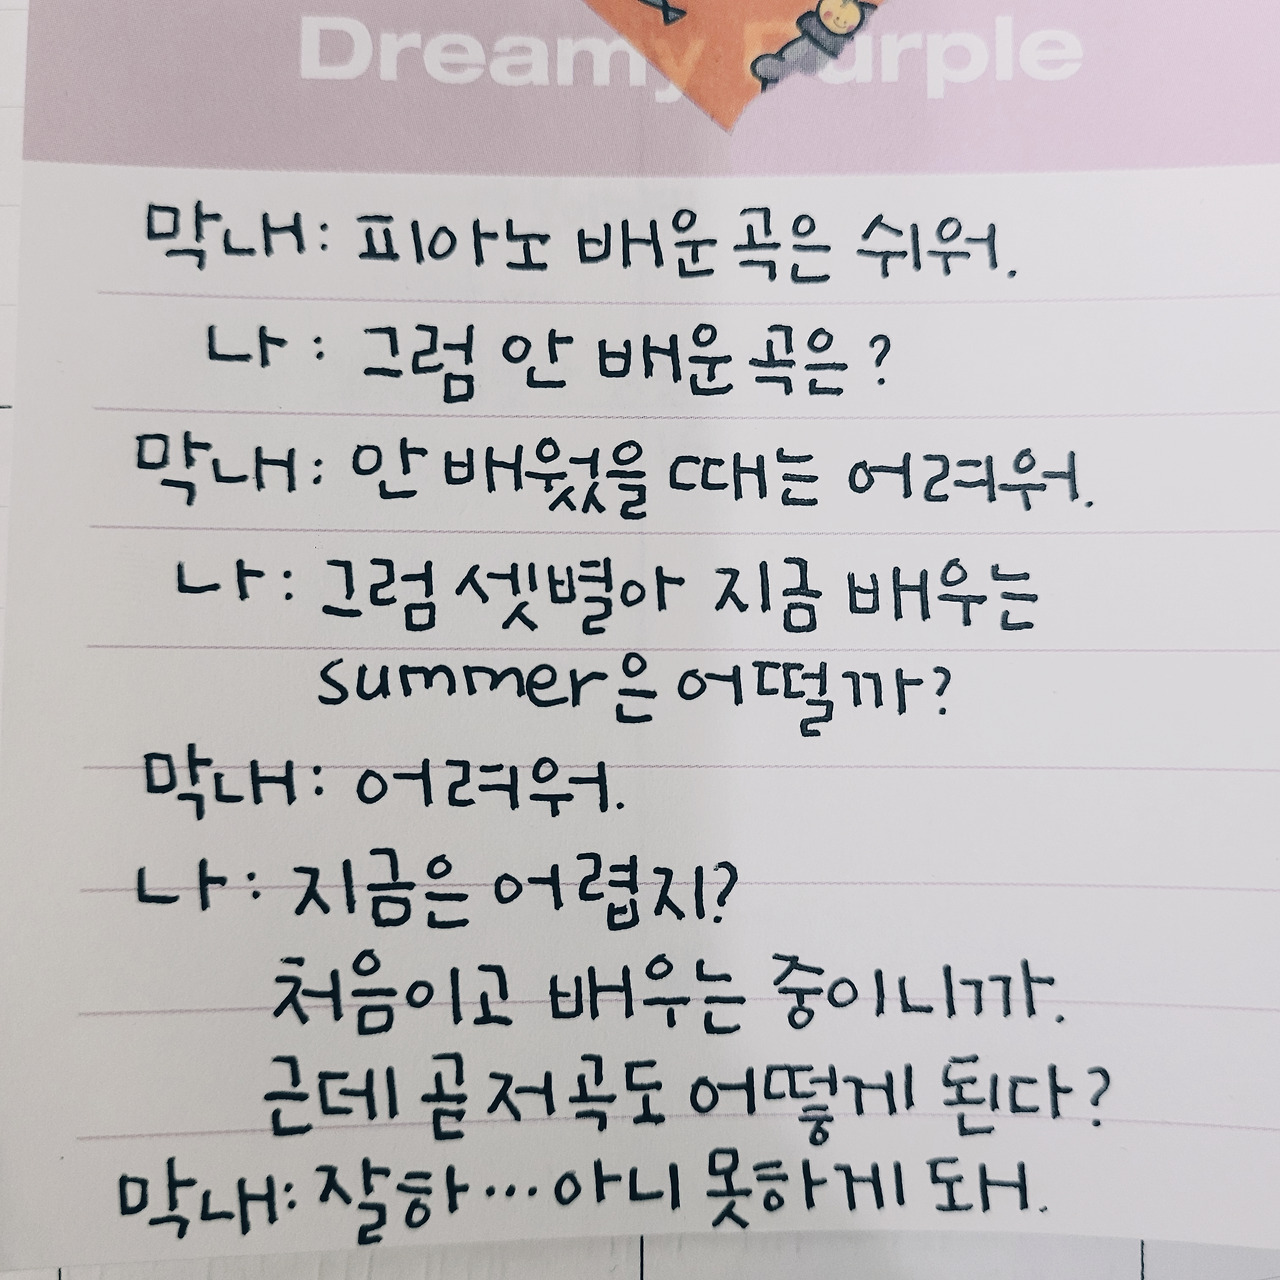 Dreamy Purple
막내: 피아노 배운 곡은 쉬워.
나: 그럼 안 배운 곡은?
막내: 안 배웠을 때는 어려워.
나: 그럼 셋별아 지금 배우는
summer은 어떨까?
막내: 어려워.
나: 지금은 어렵지?
처음이고 배우는 중이니까.
근데 곧 저 곡도 어떻게 된다?
막내: 잘하…아니 못하게 돼.